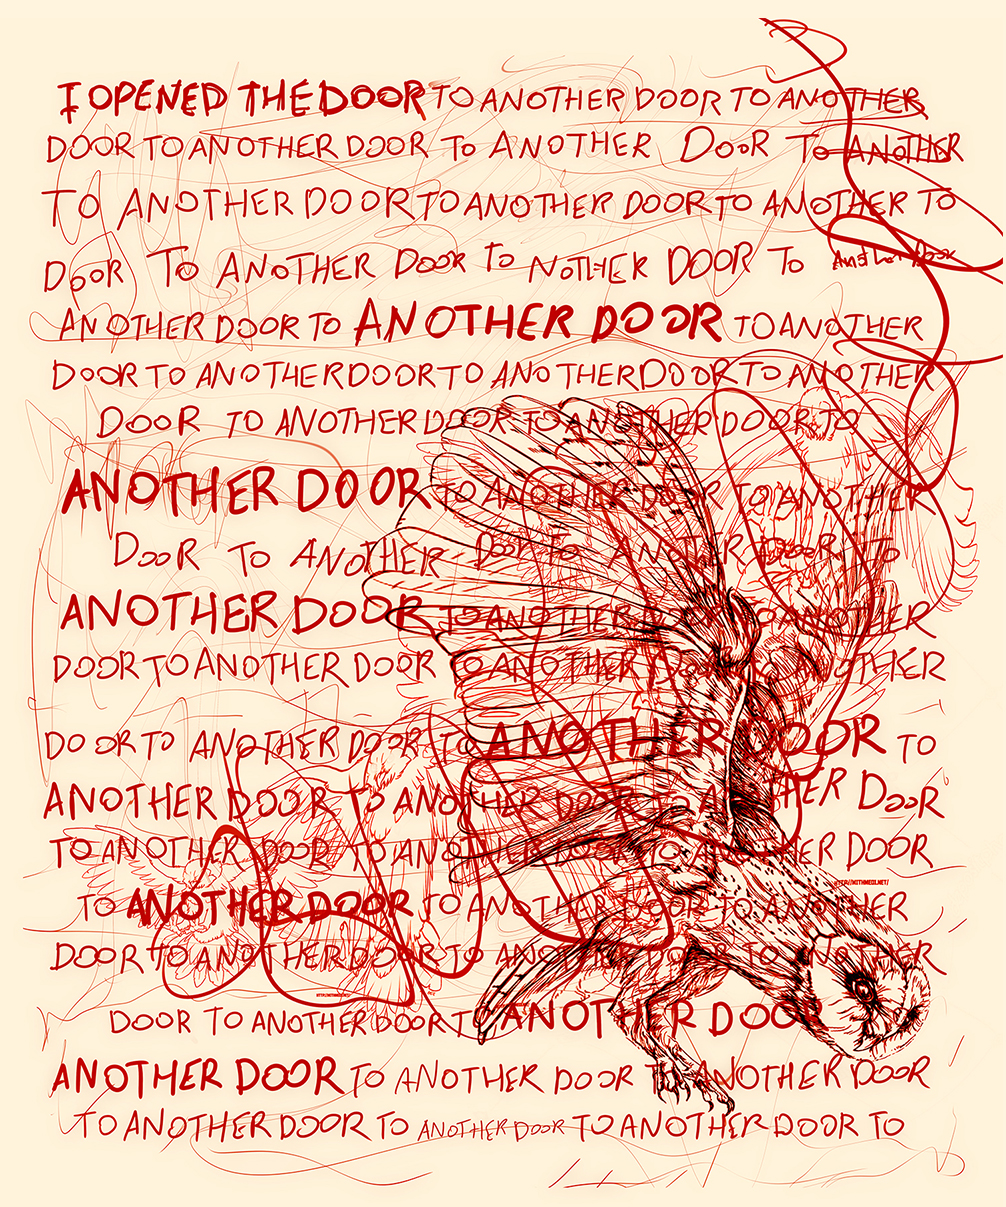 I OPENED THE DOOR TO ANOTHER DOOR TO ANOTHER
DOOR TO ANOTHER DOOR TO ANOTHER DOOR TO ANOTHER
TO ANOTHER DOOR TO ANOTHER DOOR TO ANOTHER TO
DOOR TO ANOTHER DOOR TO NOTHER DOOR TO Another Door
ANOTHER DOOR TO ANOTHER DOOR TO ANOTHER
DOOR TO ANOTHER DOOR TO ANOTHER DOOR TO ANOTHER
DOOR TO ANOTHER DOOR TO ANOTHER DOOR TO
ANOTHER DOOR TO ANOTHER DOOR TO ANOTHER
DOOR TO ANOTHER DOOR TO ANOTHER DOOR TO
ANOTHER DOOR TO ANOTHER DOOR TO ANOTHER
DOOR TO ANOTHER DOOR TO ANOTHER DOOR TO ANOTHER
DOOR TO ANOTHER DOOR TO ANOTHER DOOR TO
ANOTHER DOOR TO ANOTHER DOOR TO ANOTHER DOOR
TO ANOTHER DOOR TO ANOTHER DOOR TO ANOTHER DOOR
TO ANOTHER DOOR TO ANOTHER DOOR TO ANOTHER
DOOR TO ANOTHER DOOR TO ANOTHER DOOR TO ANOTHER
DOOR TO ANOTHER DOOR TO ANOTHER DOOR
ANOTHER DOOR TO ANOTHER DOOR TO ANOTHER DOOR
TO ANOTHER DOOR TO ANOTHER DOOR TO ANOTHER DOOR TO